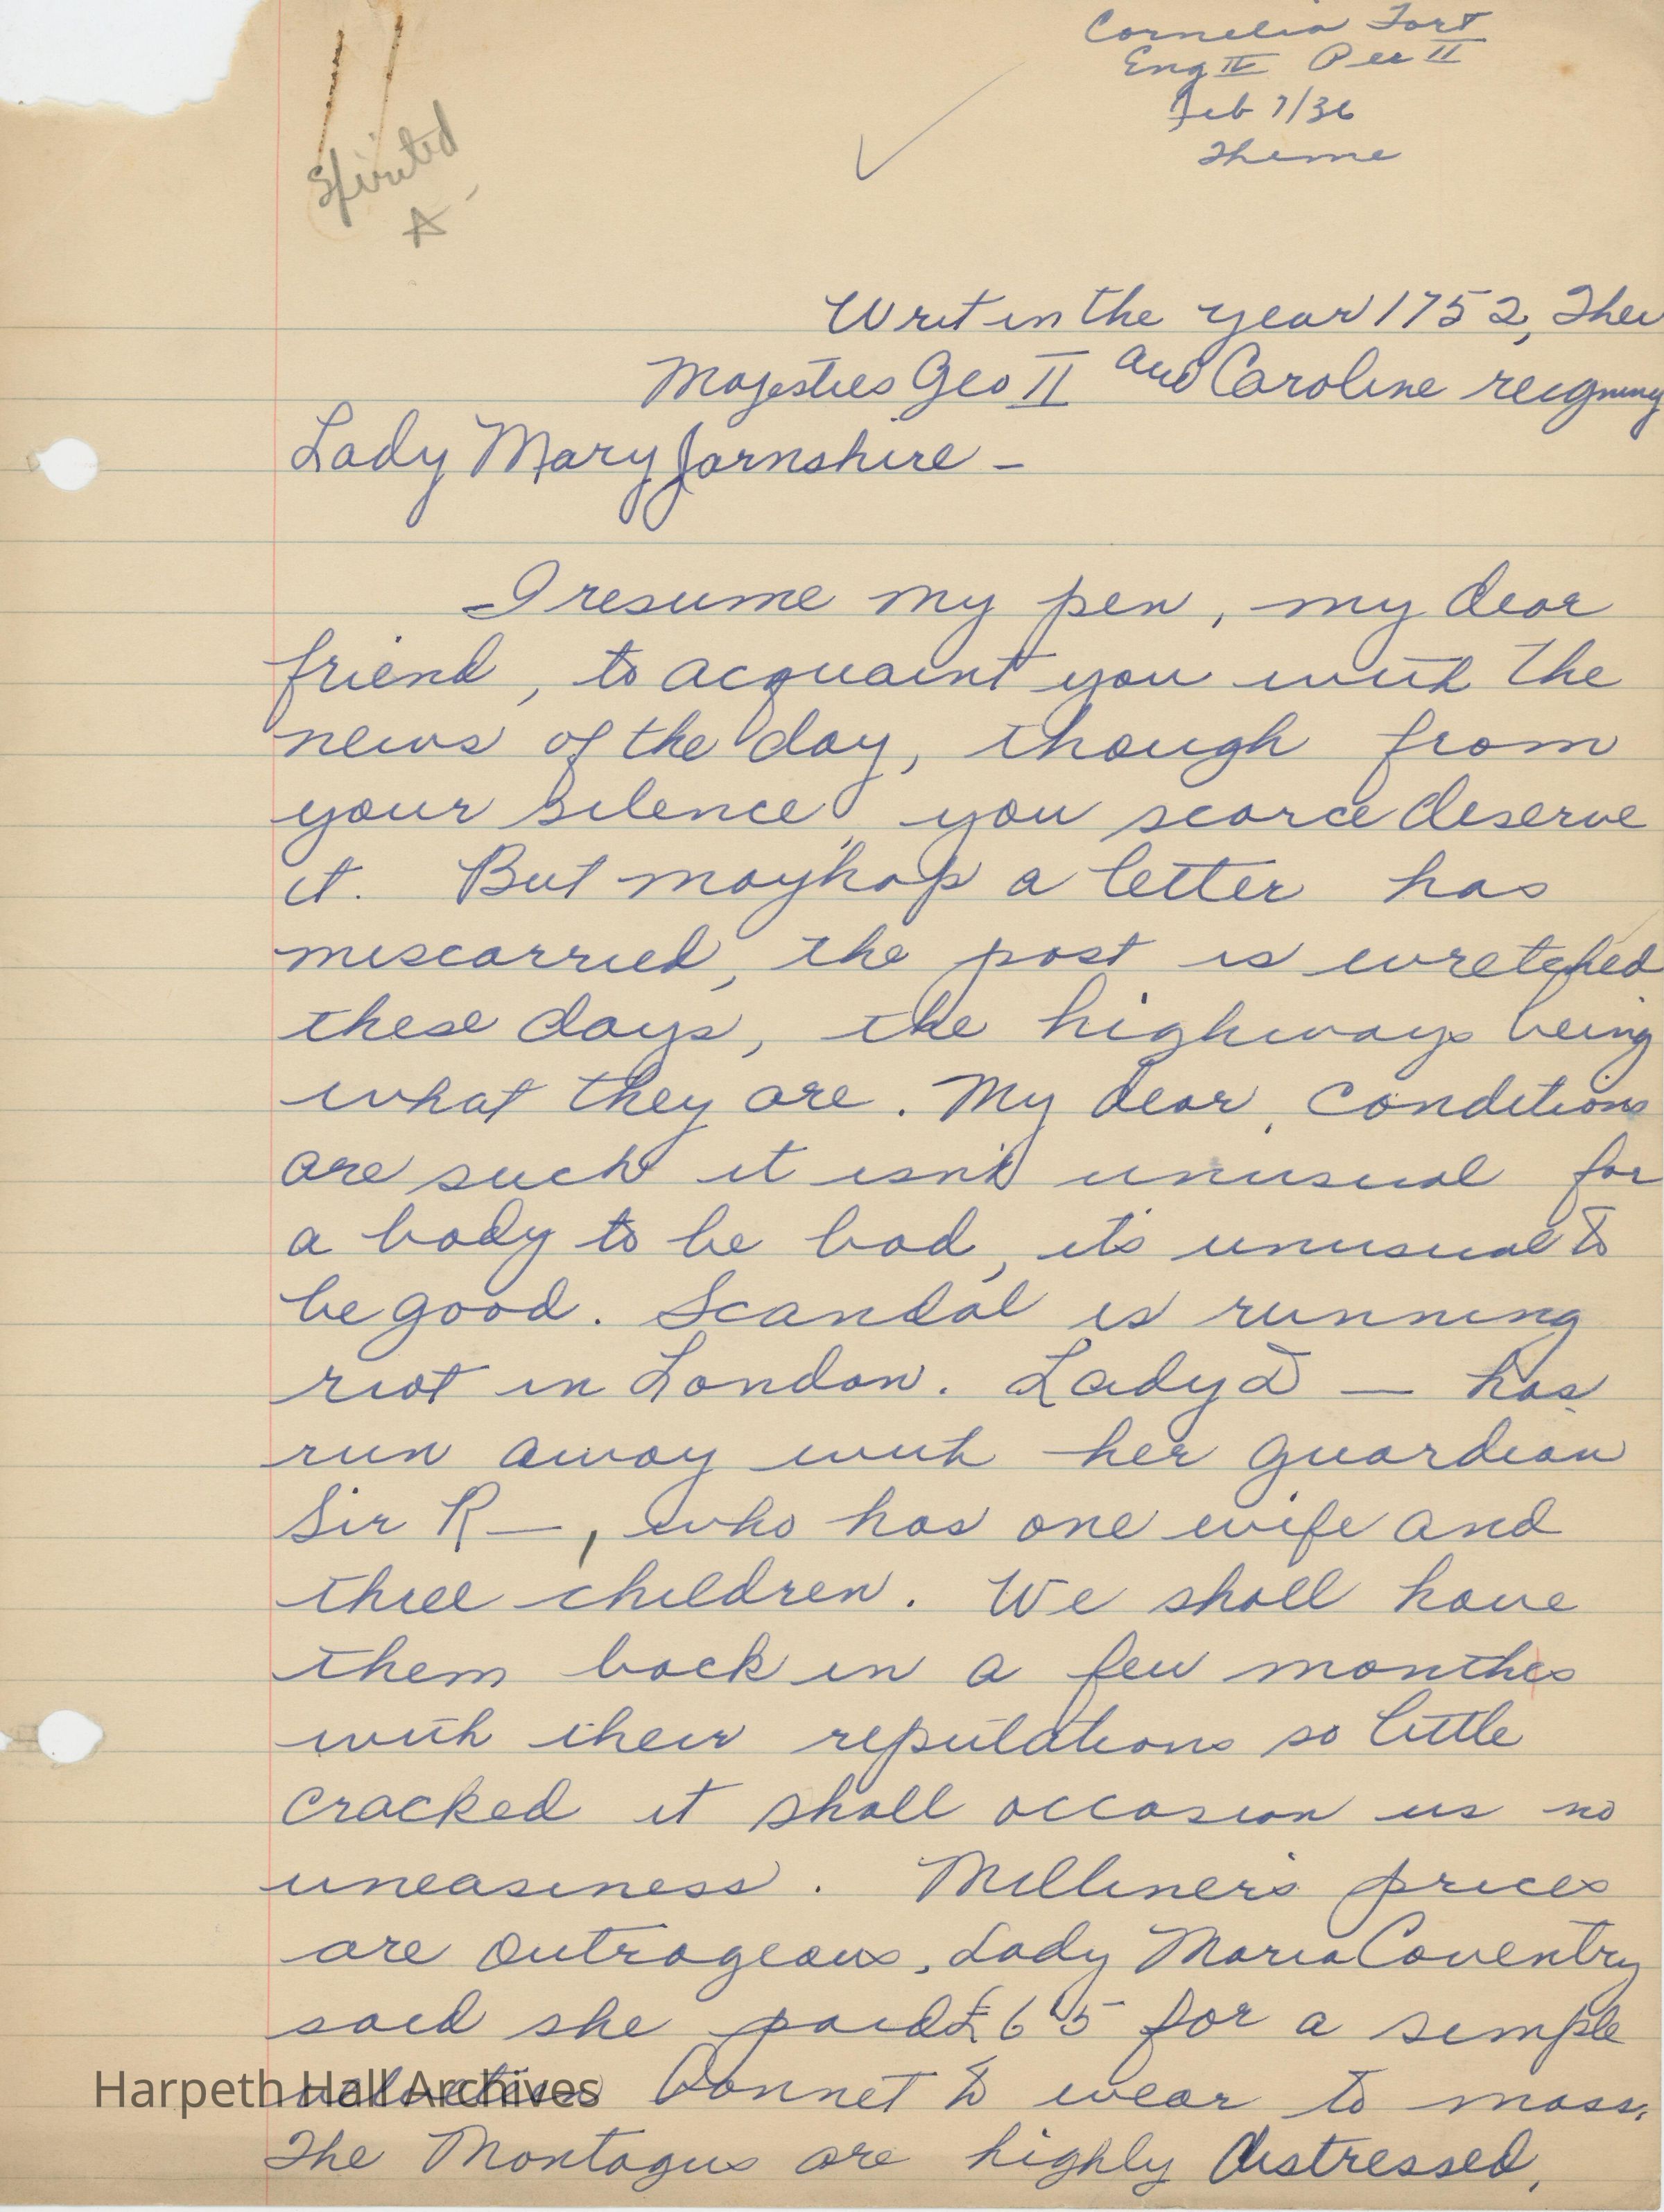 Cornelia Fort
Eng IV Per II
Feb 7/36
Theme
Spirited
A
Writ in the year 1752, Their
Majesties Geo II and Caroline reigning
Lady Mary Jarnshire –
I resume my pen, my dear
friend, to acquaint you with the
news of the day, though from
your silence, you scarce deserve
it. But mayhap a letter has
miscarried, the post is wretched
these days, the highways being
what they are. My dear, conditions
are such it isn't unusual for
a body to be bad, it's unusual to
be good. Scandal is running
riot in London. Lady D — has
run away with her guardian
Sir R—, who has one wife and
three children. We shall have
them back in a few monthes
with their reputations so little
cracked it shall occasion us no
uneasiness. Milliner's prices
are outrageous, Lady Maria Coventry
said she paid £65 for a simple
bonnet to wear to mass.
Harpeth Hall Archives
The Montagus are highly distressed,